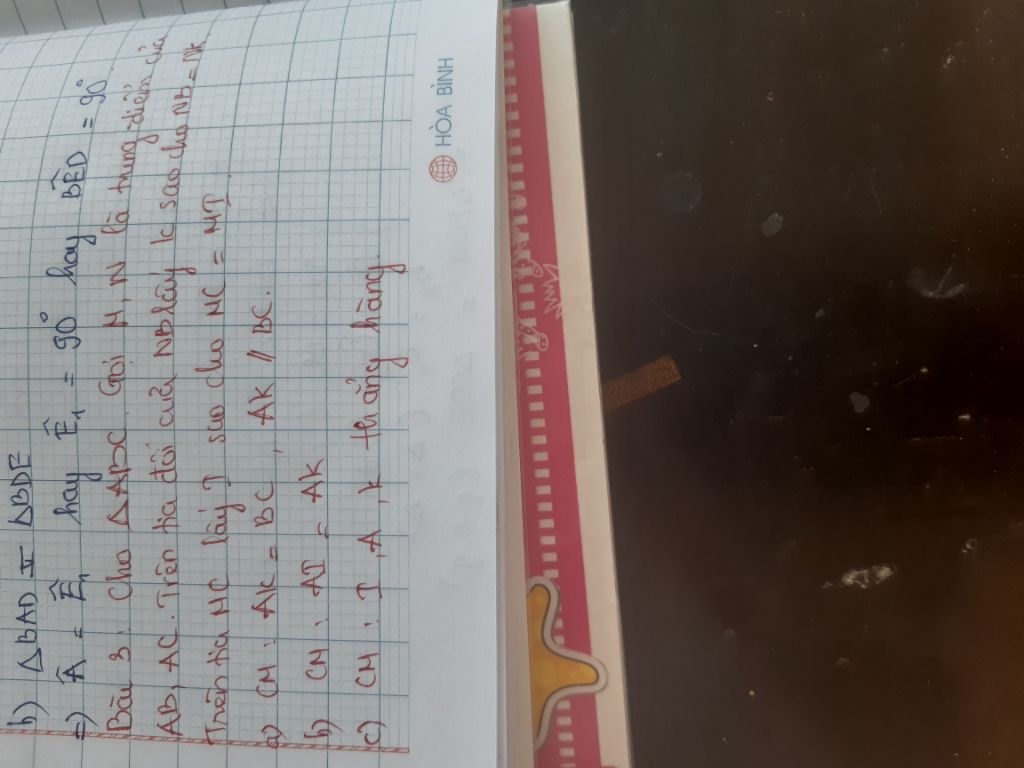 b) △BAD = △BDE
=) Â = Ê1 hay Ê1 = 90° hay BÊD = 90°
Bài 3: Cho △ABC. Gọi M, N là trung điểm của
AB, AC. Trên tia đối của NB lấy K sao cho NB = NK
Trên tia MC lấy I sao cho MC = MI.
a) CM: AK = BC, AK // BC.
b) CM: AI = AK
c) CM: I, A, K thẳng hàng.
HÒA BÌNH